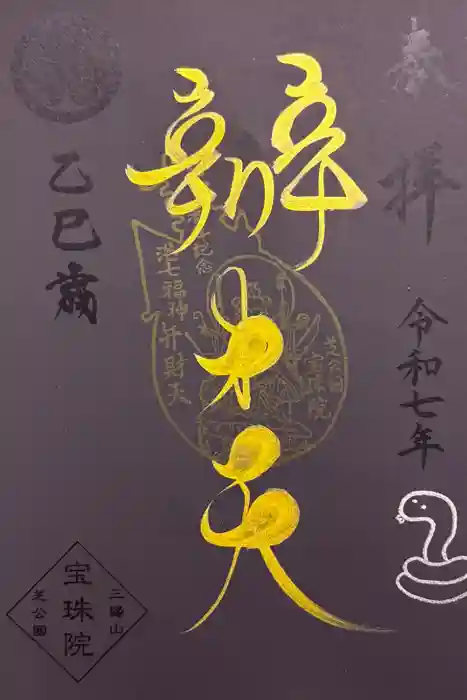 奉拝
令和七年
辯才天
参拝記念
港七福神弁財天
芝公園
宝珠院
乙巳歳
三縁山
宝珠院
芝公園